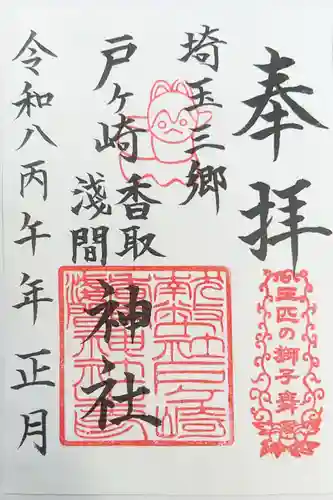 奉拝
三匹の獅子舞
埼玉三郷
戸ヶ崎香取
淺間
神社
令和八丙午年正月